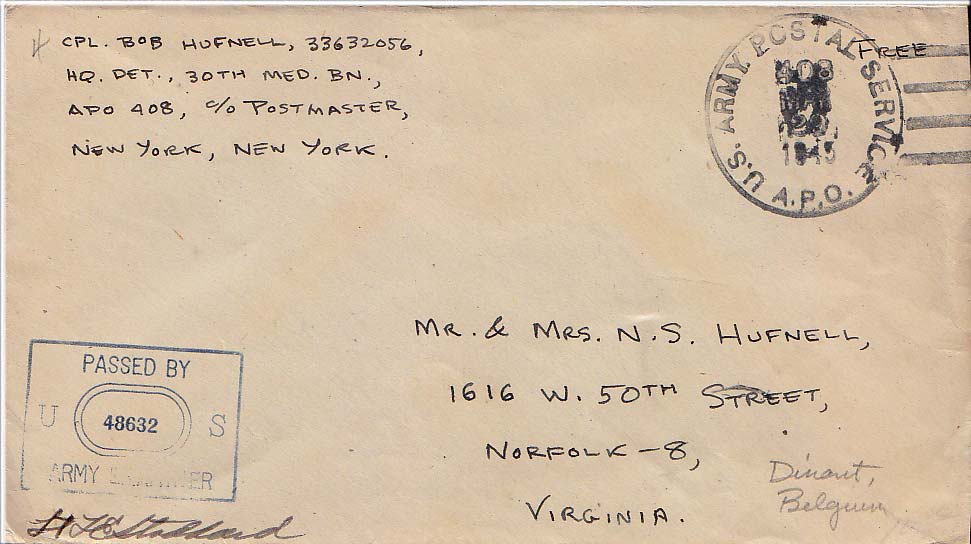 CPL. BOB HUFNELL, 33632056,
HQ. DET., 30TH MED. BN.,
APO 408, c/o POSTMASTER,
NEW YORK, NEW YORK.
FREE
U.S. ARMY POSTAL SERVICE
A.P.O.
408
1945
MR. & MRS. N.S. HUFNELL,
1616 W. 50TH STREET,
NORFOLK-8,
VIRGINIA.
PASSED BY
U 48632 S
ARMY EXAMINER
Dinant,
Belgium